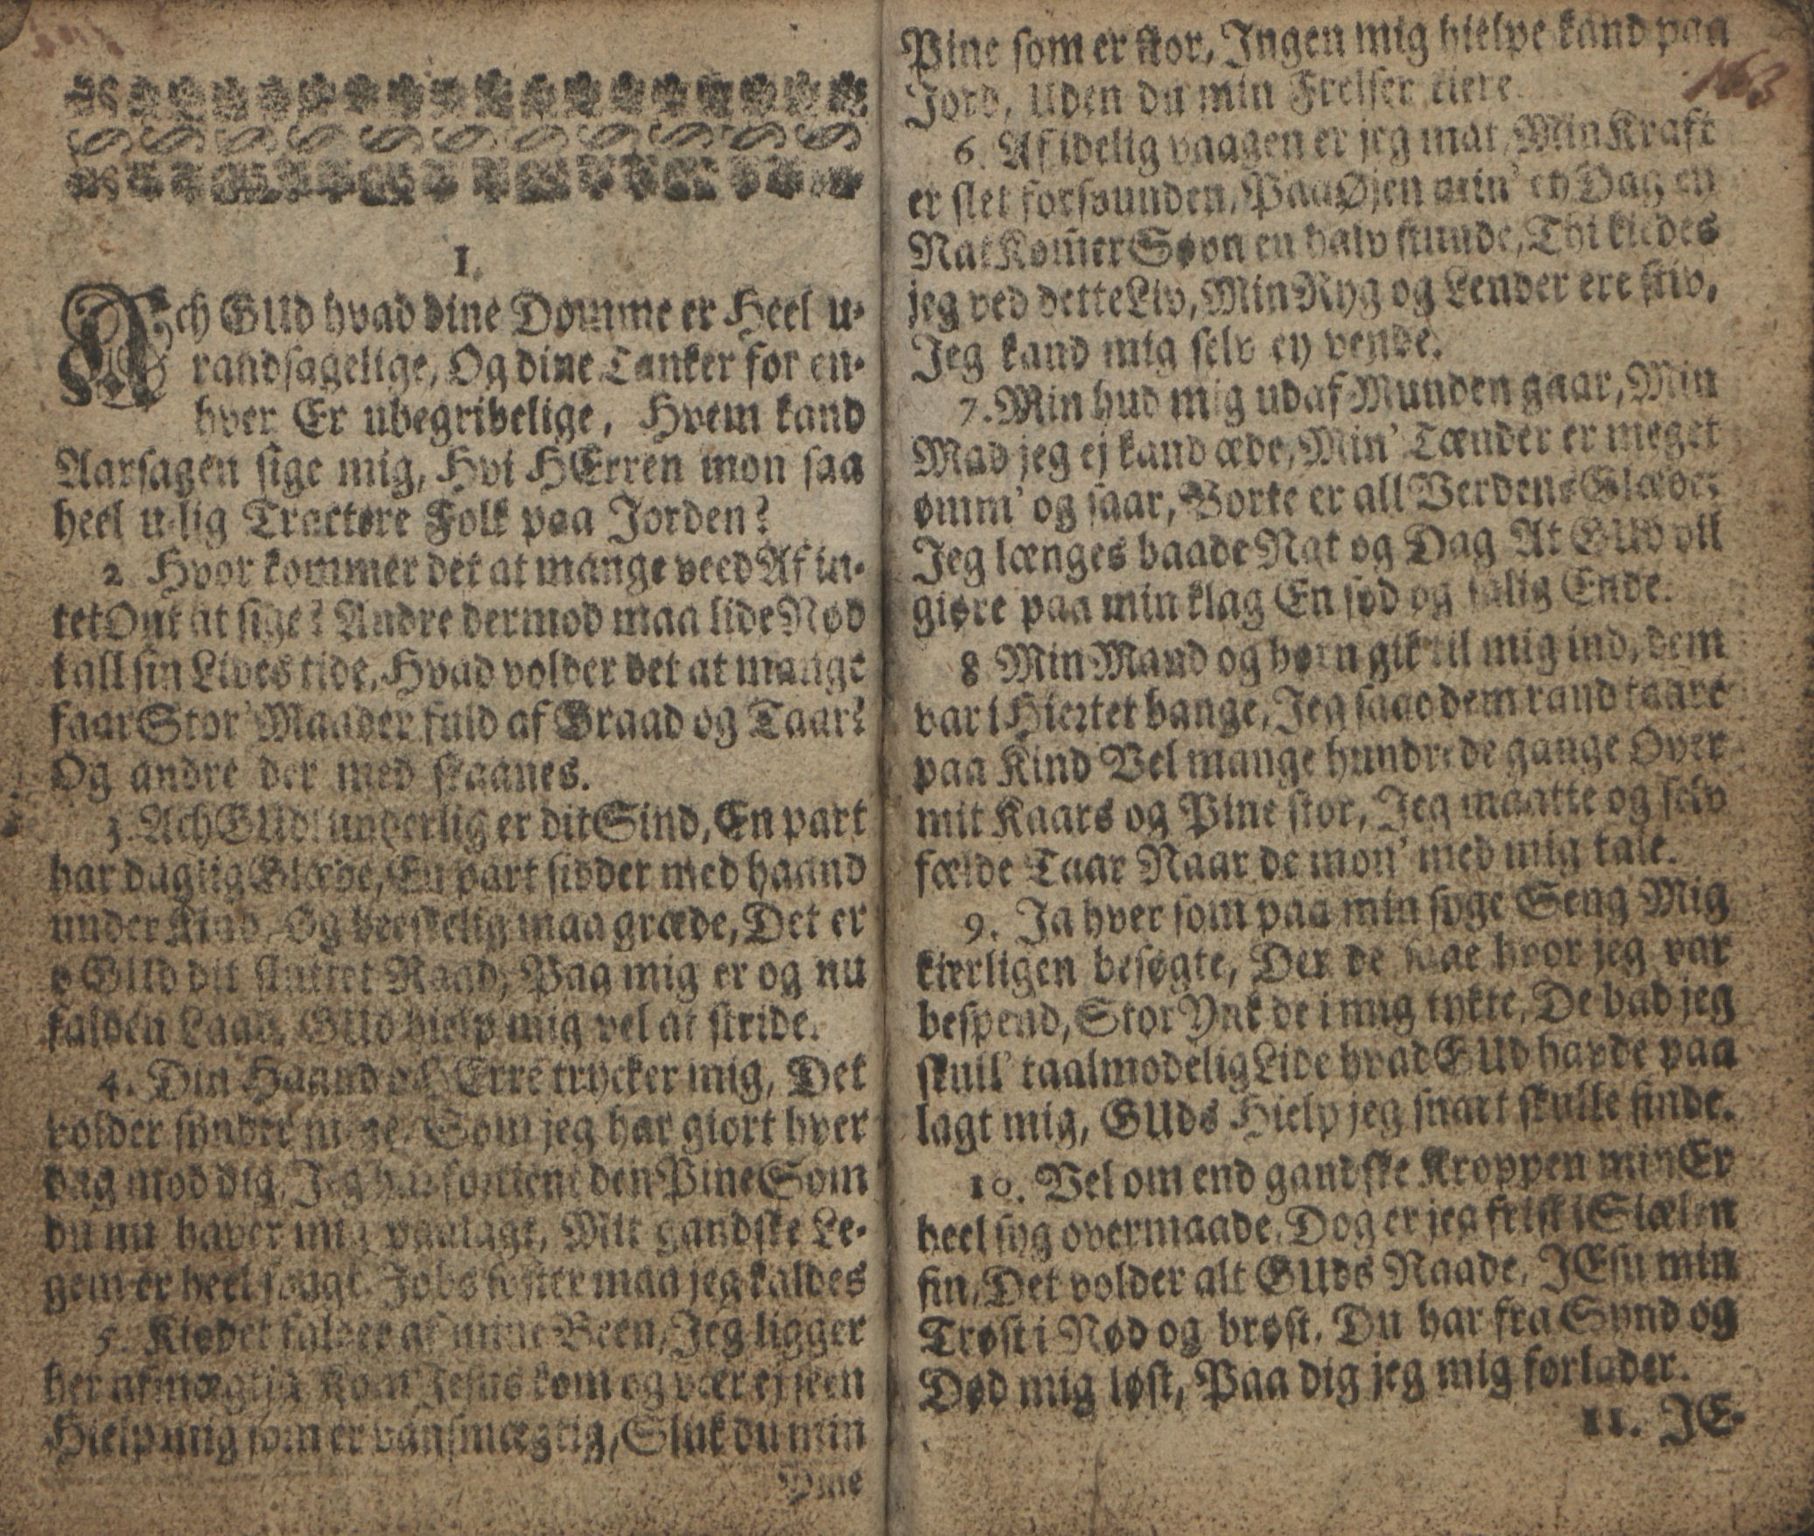 1.
Ach GUd hvad dine Domme er Heel u-
randsagelige, Og dine Tanker for en-
hver Er ubegribelige, Hvem kand
Aarsagen sige mig, Hvi HErren mon saa
heel u-lig Tractere Folk paa Jorden?
2 Hvor kommer det at mange veed Af in-
tet Ont at sige? Andre dermod maa lide Nød
I all sin Lives tide, Hvad volder det at mange
faar Stor' Maader fuld af Graad og Taar?
Og andre der med skaanes.
3. Ach GUd! underlig er dit Sind, En part
har daglig Glæde, En part sidder med haand
under Kind, Og beeskelig maa græde, Det er
o GUd dit sluttet Raad, Paa mig er og nu
falden Laad, GUd hielp mig vel at stride.
4. Din Haand och HErre trycker mig, Det
volder syndre mange, Som jeg har giort hver
dag mod dig, Jeg har fortient den Pine Som
du nu haver mig paalagt, Mit gandske Le-
gem er heel svagt, Jobs søster maa jeg kaldes
5. Kiødet falder af mine Been, Jeg ligger
her afmægtig, Kom Jesus kom og vær ej seen
Hielp mig som er vansmægtig, Sluk du min
Pine
163
Pine som er stor, Ingen mig hielpe kand paa
Jord, Uden du min Frelser kiere.
6. Af idelig vaagen er jeg mat, Min Kraft
er slet forsvunden, Paa Øjen min' ey Dag ey
Nat Kom̄er Søvn en halv stunde, Thi kiedes
jeg ved dette Liv, Min Ryg og Lender ere stiv,
Jeg kand mig selv ey vende.
7. Min hud mig ud af Munden gaar, Min
Mad jeg ej kand æde, Min' Tænder er meget
ømm' og saar, Borte er all Verdens Glæde;
Jeg længes baade Nat og Dag At GUd vil
giøre paa min klag En sød og salig Ende.
8 Min Mand og børn gik til mig ind, dem
var i Hiertet bange, Jeg saae dem rand taare
paa Kind Vel mange hundrede gange Over
mit Kaars og Pine stor, Jeg maatte og selv
fælde Taar Naar de mon' med mig tale.
9. Ja hver som paa min syge Seng Mig
kierligen besøgte, Der de saae hvor jeg var
bespend, Stor Ynk de i mig tykte, De bad jeg
skull' taalmodelig Lide hvad GUd havde paa
lagt mig, GUds Hielp jeg snart skulle finde.
10. Vel om end gandske Kroppen min Er
heel syg overmaade, Dog er jeg frisk i Siælen
fin, Det volder alt GUds Naade, JEsu min
Trøst i Nød og brøst, Du har fra Synd og
Død mig løst, Paa dig jeg mig forlader.
11. JE-